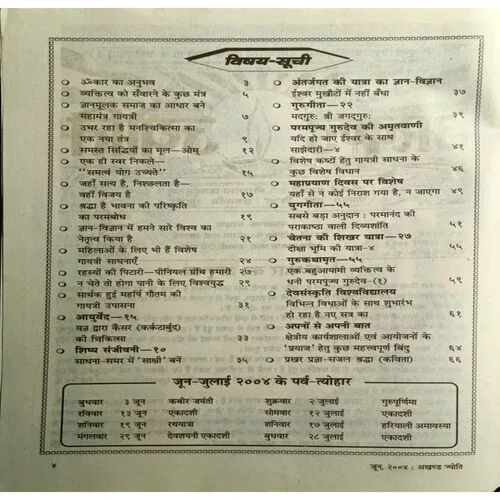 विषय-सूची
ॐकार का अनुभव ३
व्यक्तित्व को सँवारने के कुछ मंत्र ५
ज्ञानमूलक समाज का आधार बने
महामंत्र गायत्री ७
उभर रहा है मनश्चिकित्सा का
एक नया तंत्र ९
समस्त सिद्धियों का मूल—ओम् १२
एक ही स्वर निकले—
"समत्वं योग उच्यते" १५
जहाँ सत्य है, निश्छलता है—
वहीं विजय है १७
श्रद्धा है भावना की परिष्कृति
का परमबोध १९
ज्ञान-विज्ञान में हमने सारे विश्व का
नेतृत्व किया है २१
महिलाओं के लिए भी हैं विशेष
गायत्री साधनाएँ २४
रहस्यों की पिटारी—पीनियल ग्रंथि हमारी २७
न चेते तो होगा पानी के लिए विश्वयुद्ध २९
सार्थक हुई महर्षि गौतम की
गायत्री उपासना ३१
आयुर्वेद—१५
यज्ञ द्वारा कैंसर (कर्कटार्बुद)
की चिकित्सा ३३
शिष्य संजीवनी—१०
साधना-समर में 'साक्षी' बनें ३५
अंतर्जगत की यात्रा का ज्ञान-विज्ञान
ईश्वर मुखौटों में नहीं बँधा ३७
गुरुगीता—२२
मदगुरुः श्री जगदगुरुः ३९
परमपूज्य गुरुदेव की अमृतवाणी
यदि हो जाए ईश्वर के साथ
साझेदारी—४ ४१
विशेष कष्टों हेतु गायत्री साधना के
कुछ विशेष विधान ४६
महाप्रयाण दिवस पर विशेष
यहाँ से न कोई निराश गया है, न जाएगा ४९
युगगीता—५५
सबसे बड़ा अनुदान : परमानंद की
पराकाष्ठा वाली दिव्यशांति ५१
चेतना की शिखर यात्रा—२७
दीक्षा भूमि की यात्रा-४ ५५
गुरुकथामृत—५५
एक बहुआयामी व्यक्तित्व के
धनी परमपूज्य गुरुदेव-(१) ५९
देवसंस्कृति विश्वविद्यालय
विभिन्न विधाओं के साथ शुभारंभ
हो रहा है नए सत्र का ६१
अपनों से अपनी बात
क्षेत्रीय कार्यशालाओं एवं आयोजनों के
'प्रयाज' हेतु कुछ महत्त्वपूर्ण बिंदु ६४
प्रखर प्रज्ञा-सजल श्रद्धा (कविता) ६६
जून-जुलाई २००४ के पर्व-त्योहार
बुधवार ३ जून कबीर जयंती शुक्रवार २ जुलाई गुरुपूर्णिमा
रविवार १३ जून एकादशी सोमवार १२ जुलाई एकादशी
शनिवार १९ जून रथयात्रा शनिवार १७ जुलाई हरियाली अमावस्या
मंगलवार २९ जून देवशयनी एकादशी बुधवार २८ जुलाई एकादशी
४ जून, २००४ : अखण्ड ज्योति